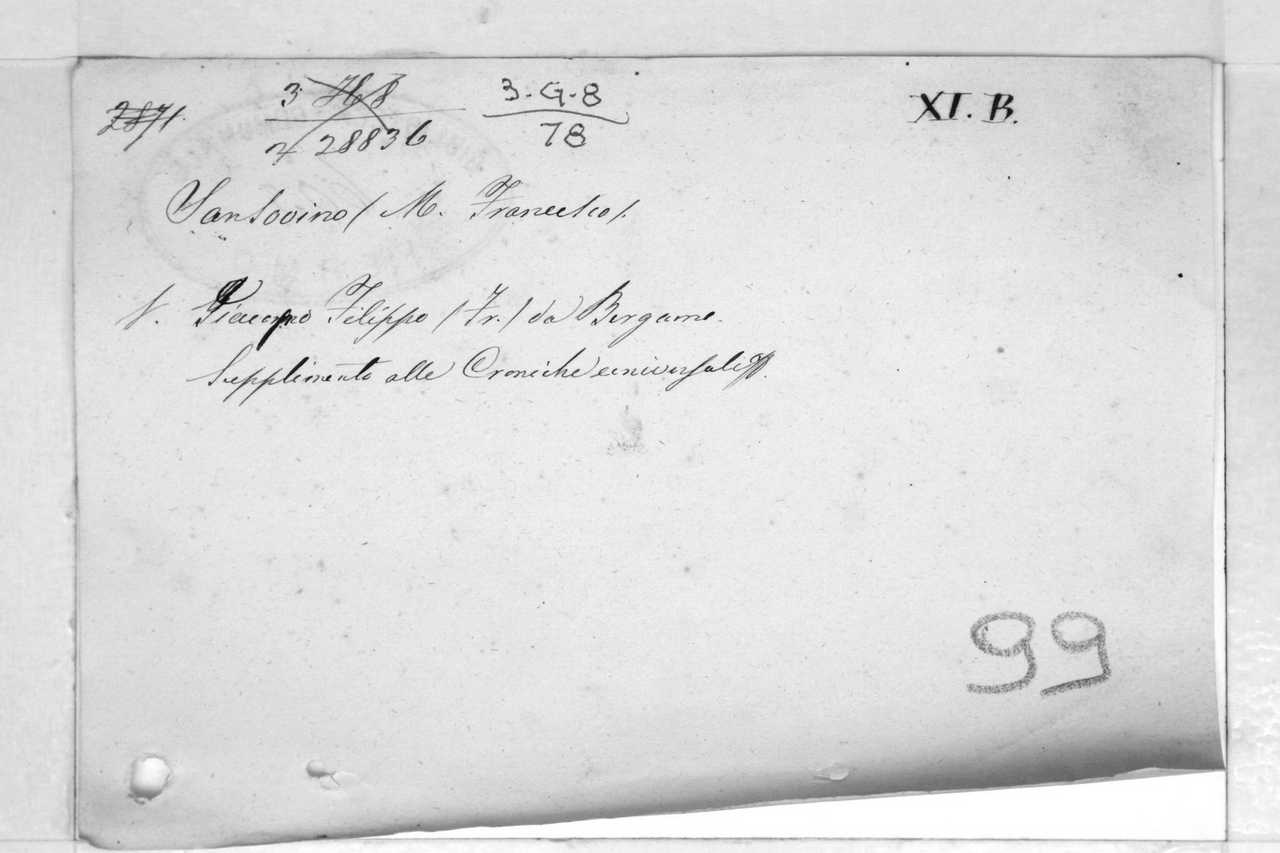 2871 3 H 8 3-G-8 XI. B.
28836 78
Sansovino (M. Francesco).
V. Giacomo Filippo (Fr.) da Bergamo.
Supplimento alle Croniche universali
99